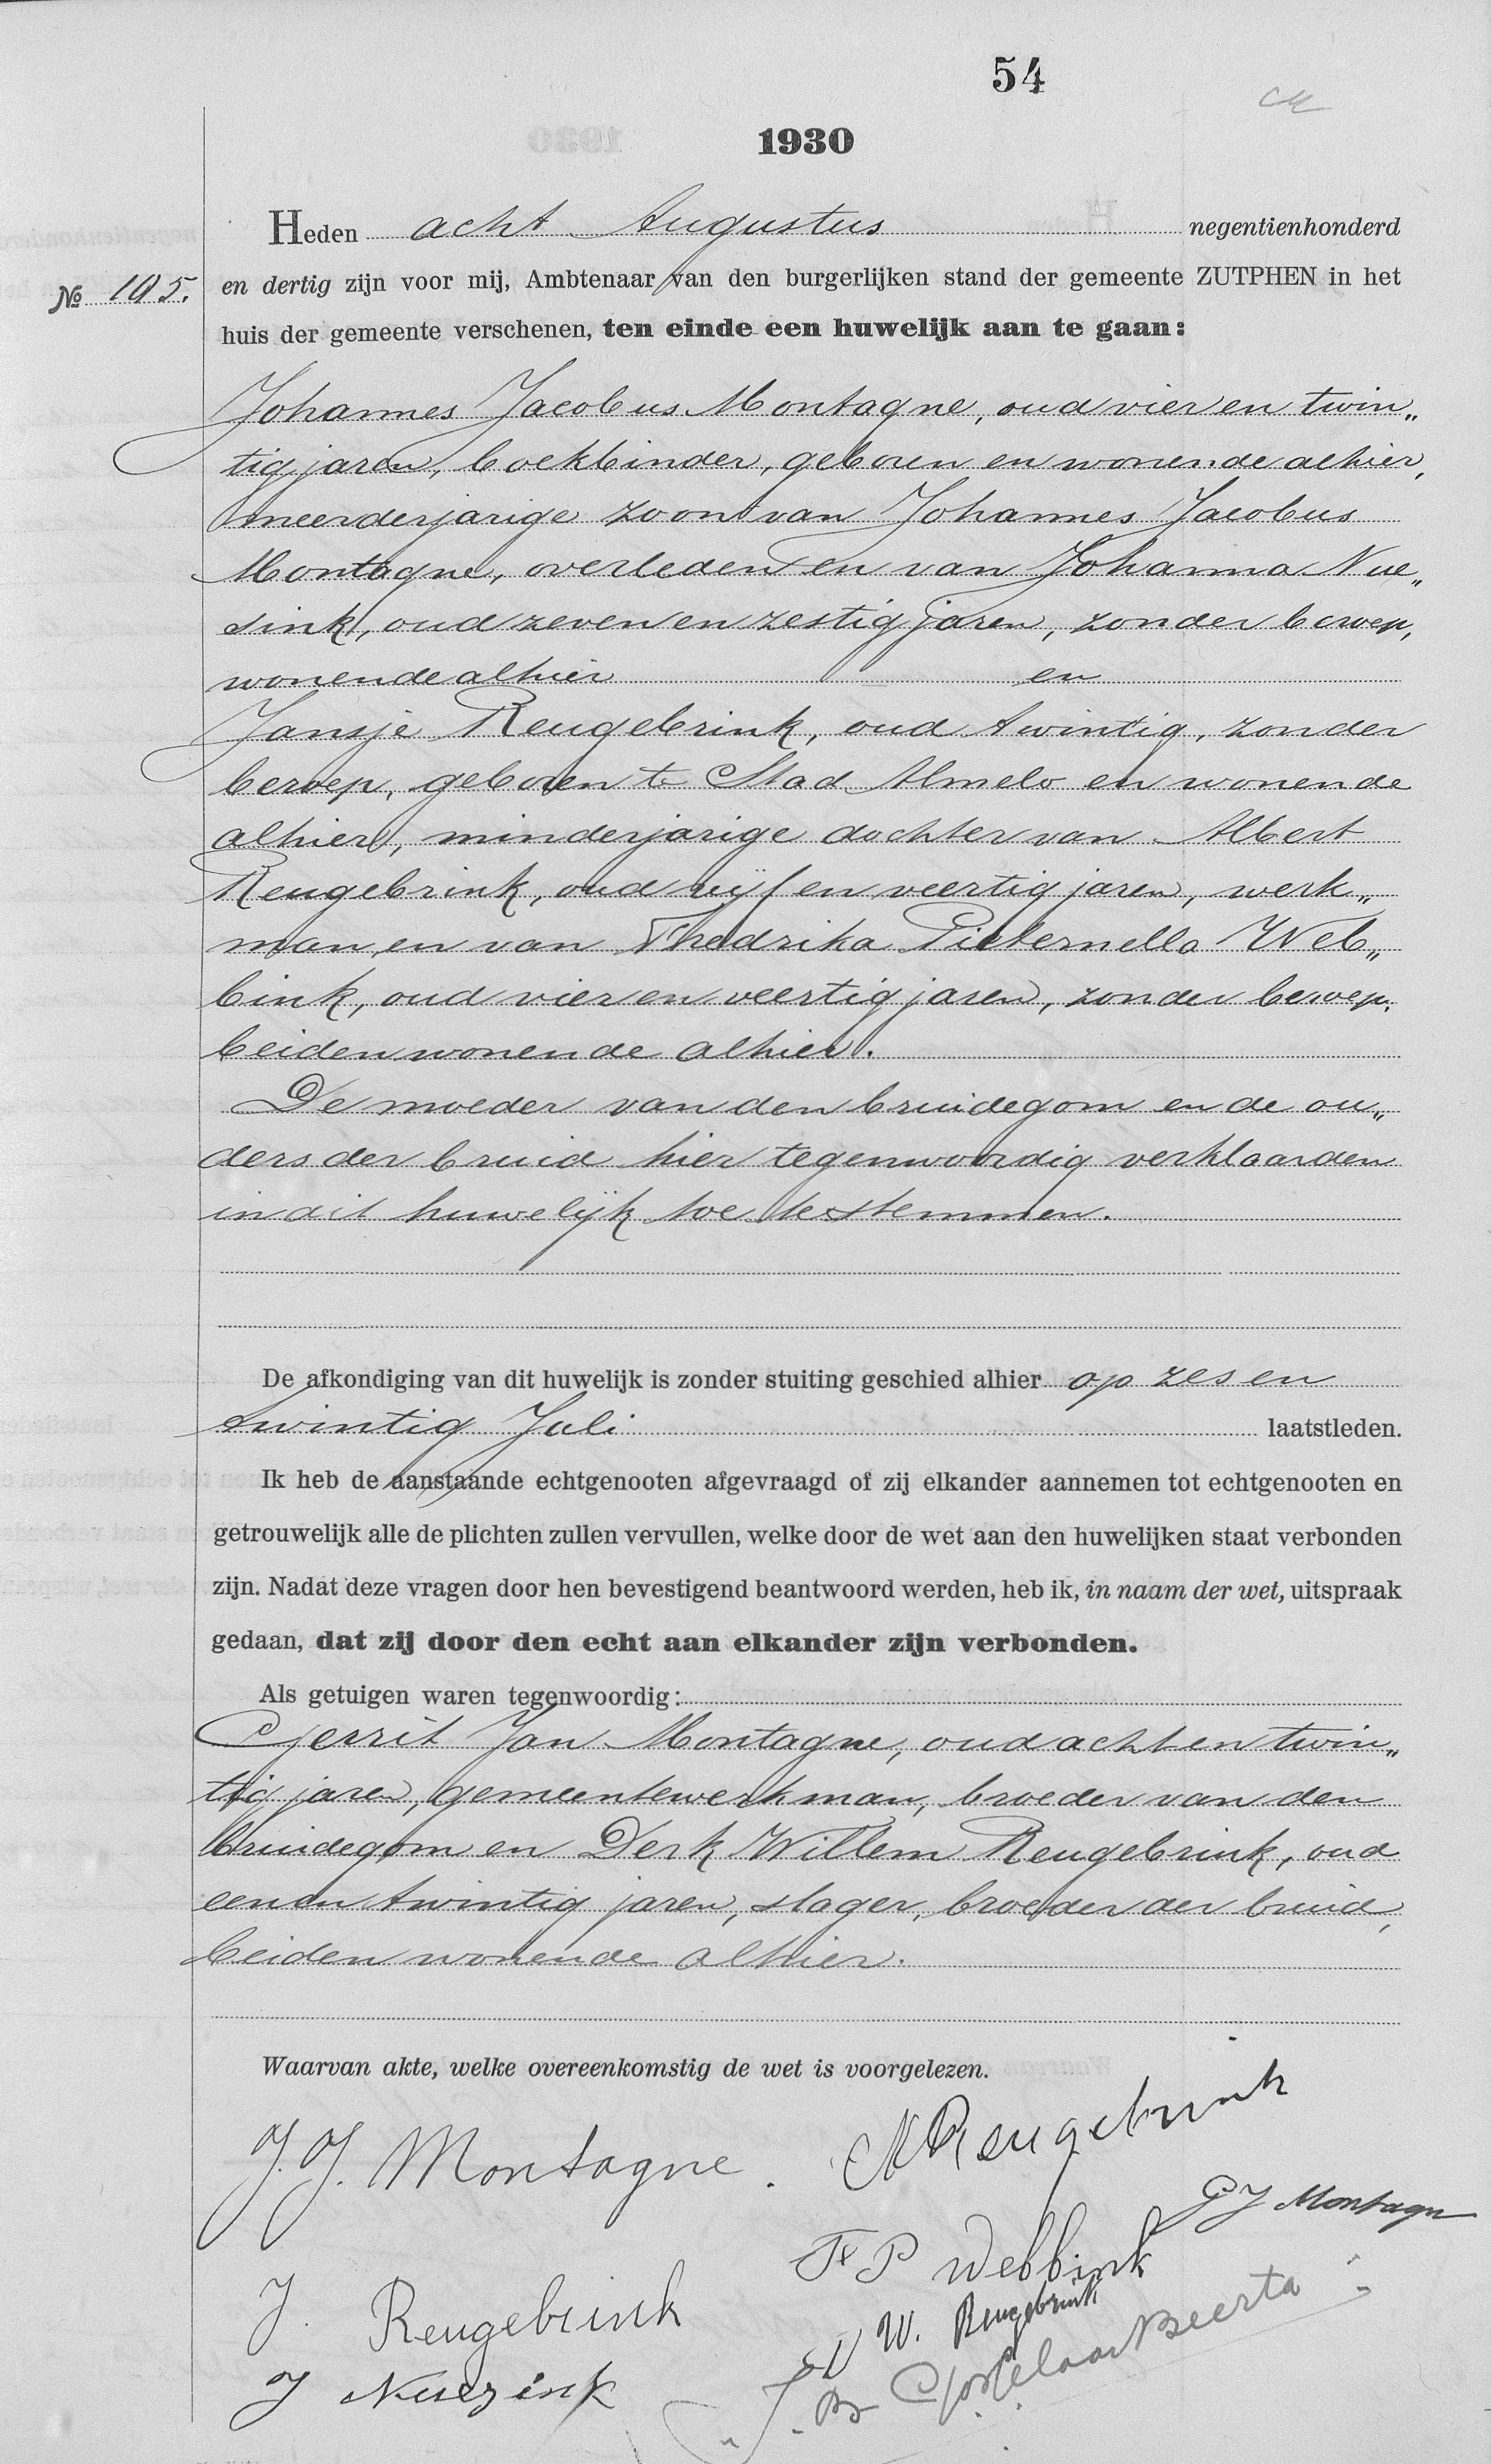 54
1930
Heden acht Augustus negentienhonderd
№ 105. en dertig zijn voor mij, Ambtenaar van den burgerlijken stand der gemeente ZUTPHEN in het
huis der gemeente verschenen, ten einde een huwelijk aan te gaan:
Johannes Jacobus Montagne, oud vier en twin„
tig jaren, boekbinder, geboren en wonende alhier,
meerderjarige zoon van Johannes Jacobus
Montagne, overleden en van Johanna Nue„
sink, oud zeven en zestig jaren, zonder beroep,
wonende alhier en
Jansje Reugebrink, oud twintig, zonder
beroep, geboren te Stad Almelo en wonende
alhier, minderjarige dochter van Albert
Reugebrink, oud vijf en veertig jaren, werk„
man, en van Fredrika Pieternella Web„
bink, oud vier en veertig jaren, zonder beroep,
beiden wonende alhier.
De moeder van den bruidegom en de ou„
ders der bruid hier tegenwoordig verklaarden
in dit huwelijk toe te stemmen.
De afkondiging van dit huwelijk is zonder stuiting geschied alhier op zes en
twintig Juli laatstleden.
Ik heb de aanstaande echtgenooten afgevraagd of zij elkander aannemen tot echtgenooten en
getrouwelijk alle de plichten zullen vervullen, welke door de wet aan den huwelijken staat verbonden
zijn. Nadat deze vragen door hen bevestigend beantwoord werden, heb ik, in naam der wet, uitspraak
gedaan, dat zij door den echt aan elkander zijn verbonden.
Als getuigen waren tegenwoordig:
Gerrit Jan Montagne, oud acht en twin„
tig jaren, gemeentewerkman, broeder van den
bruidegom en Derk Willem Reugebrink, oud
een en twintig jaren, slager, broeder der bruid,
beiden wonende alhier.
Waarvan akte, welke overeenkomstig de wet is voorgelezen.
J. J. Montagne. A Reugebrink
G J Montagne
F P Webbink
J. Reugebrink
D W. Reugebrink
J Nuesink